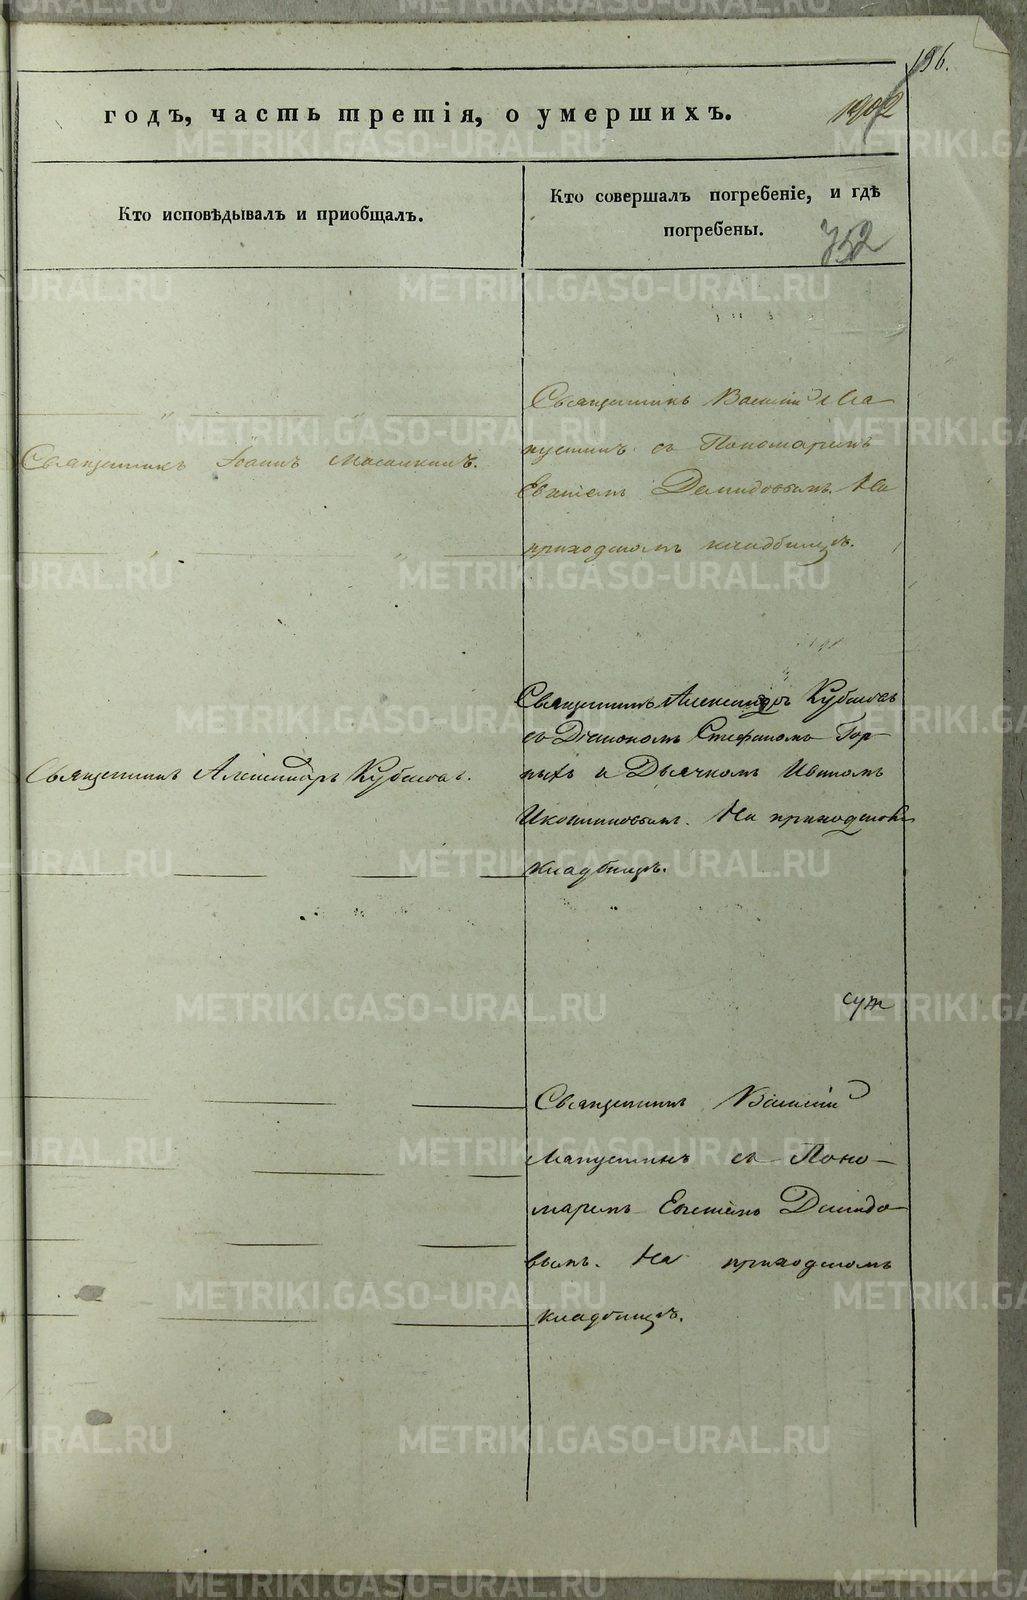 196.
годъ, часть третія, о умершихъ.
1902
Кто исповѣдывалъ и приобщалъ.
Кто совершалъ погребеніе, и гдѣ
погребены.
752
Священникъ Іоаннъ
Священникъ Василій
съ Пономаремъ
Демидовымъ. На
приходскомъ кладбищѣ.
Священникъ Александръ Кубасовъ.
Священникъ Александръ Кубасовъ
съ Діакономъ Стефаномъ Гор-
ныхъ и Дьячкомъ Иваномъ
На приходскомъ
кладбищѣ.
Священникъ Василій
съ Поно-
маремъ Демидо-
вымъ. На приходскомъ
кладбищѣ.
METRIKI.GASO-URAL.RU